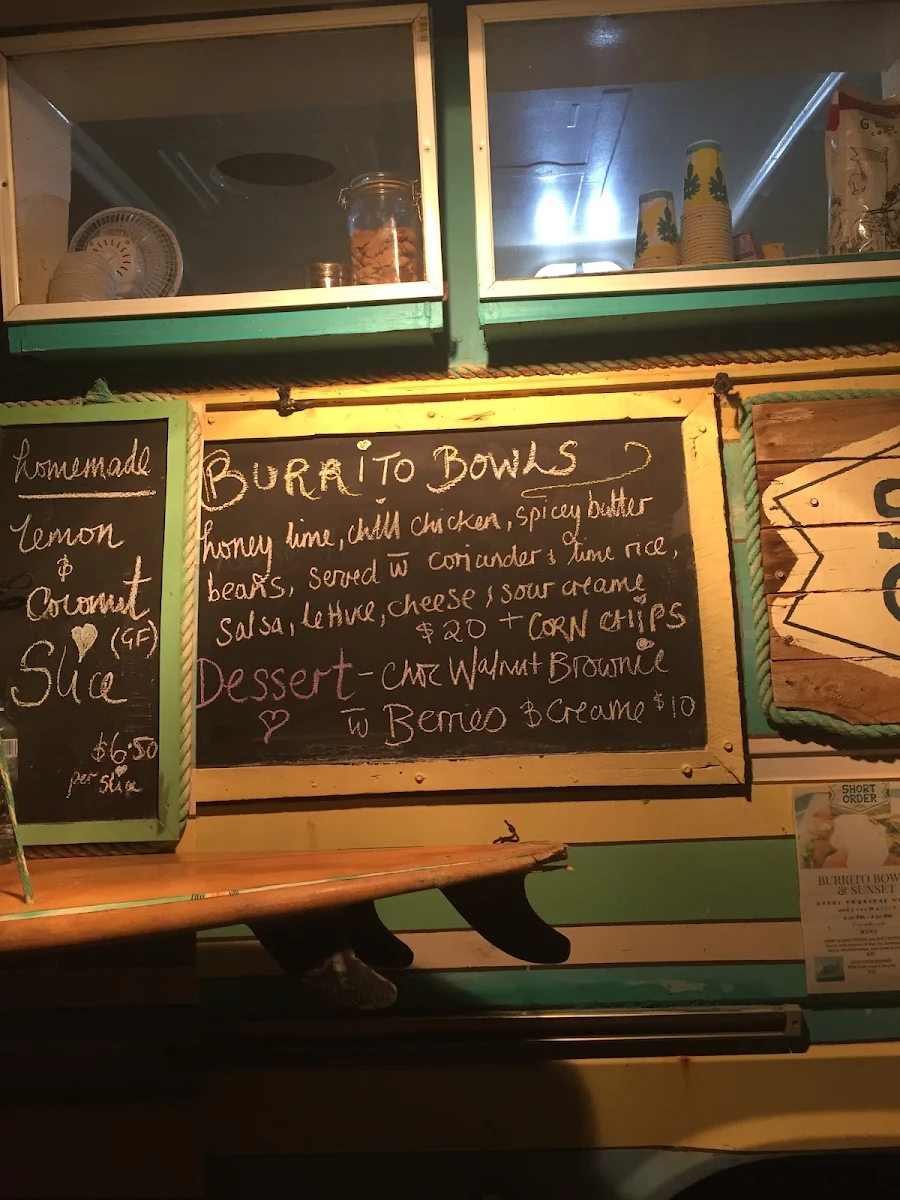 homemade
lemon
&
Coconut
(GF)
Slice
$6.50
per slice
BURRiTO BOWLS
honey lime, chill chicken, spicey butter
beans, served w̅ coriander & lime rice,
salsa, lettuce, cheese & sour creame
$20 + CORN CHIPS
Dessert - Choc Walnut Brownie
w̅ Berries & Creame $10
SHORT
ORDER
BURRITO BOW
& SUNSET